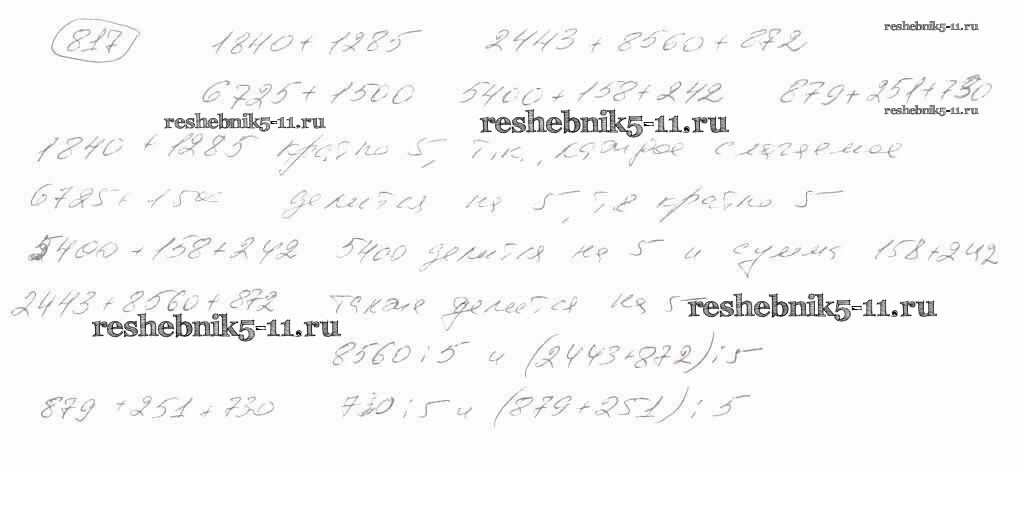 817 1840 + 1285 2443 + 8560 + 872
reshebnik5-11.ru
6725 + 1500 5400 + 158 + 242 879 + 251 + 730
reshebnik5-11.ru reshebnik5-11.ru reshebnik5-11.ru
1840 + 1285 кратно 5, т.к. каждое слагаемое
6725 + 1500 делится на 5, т.е кратно 5
5400 + 158 + 242 5400 делится на 5 и сумма 158 + 242
2443 + 8560 + 872 также делится на 5 reshebnik5-11.ru
reshebnik5-11.ru
8560 ⋮ 5 и (2443 + 872) ⋮ 5
879 + 251 + 730 730 ⋮ 5 и (879 + 251) ⋮ 5